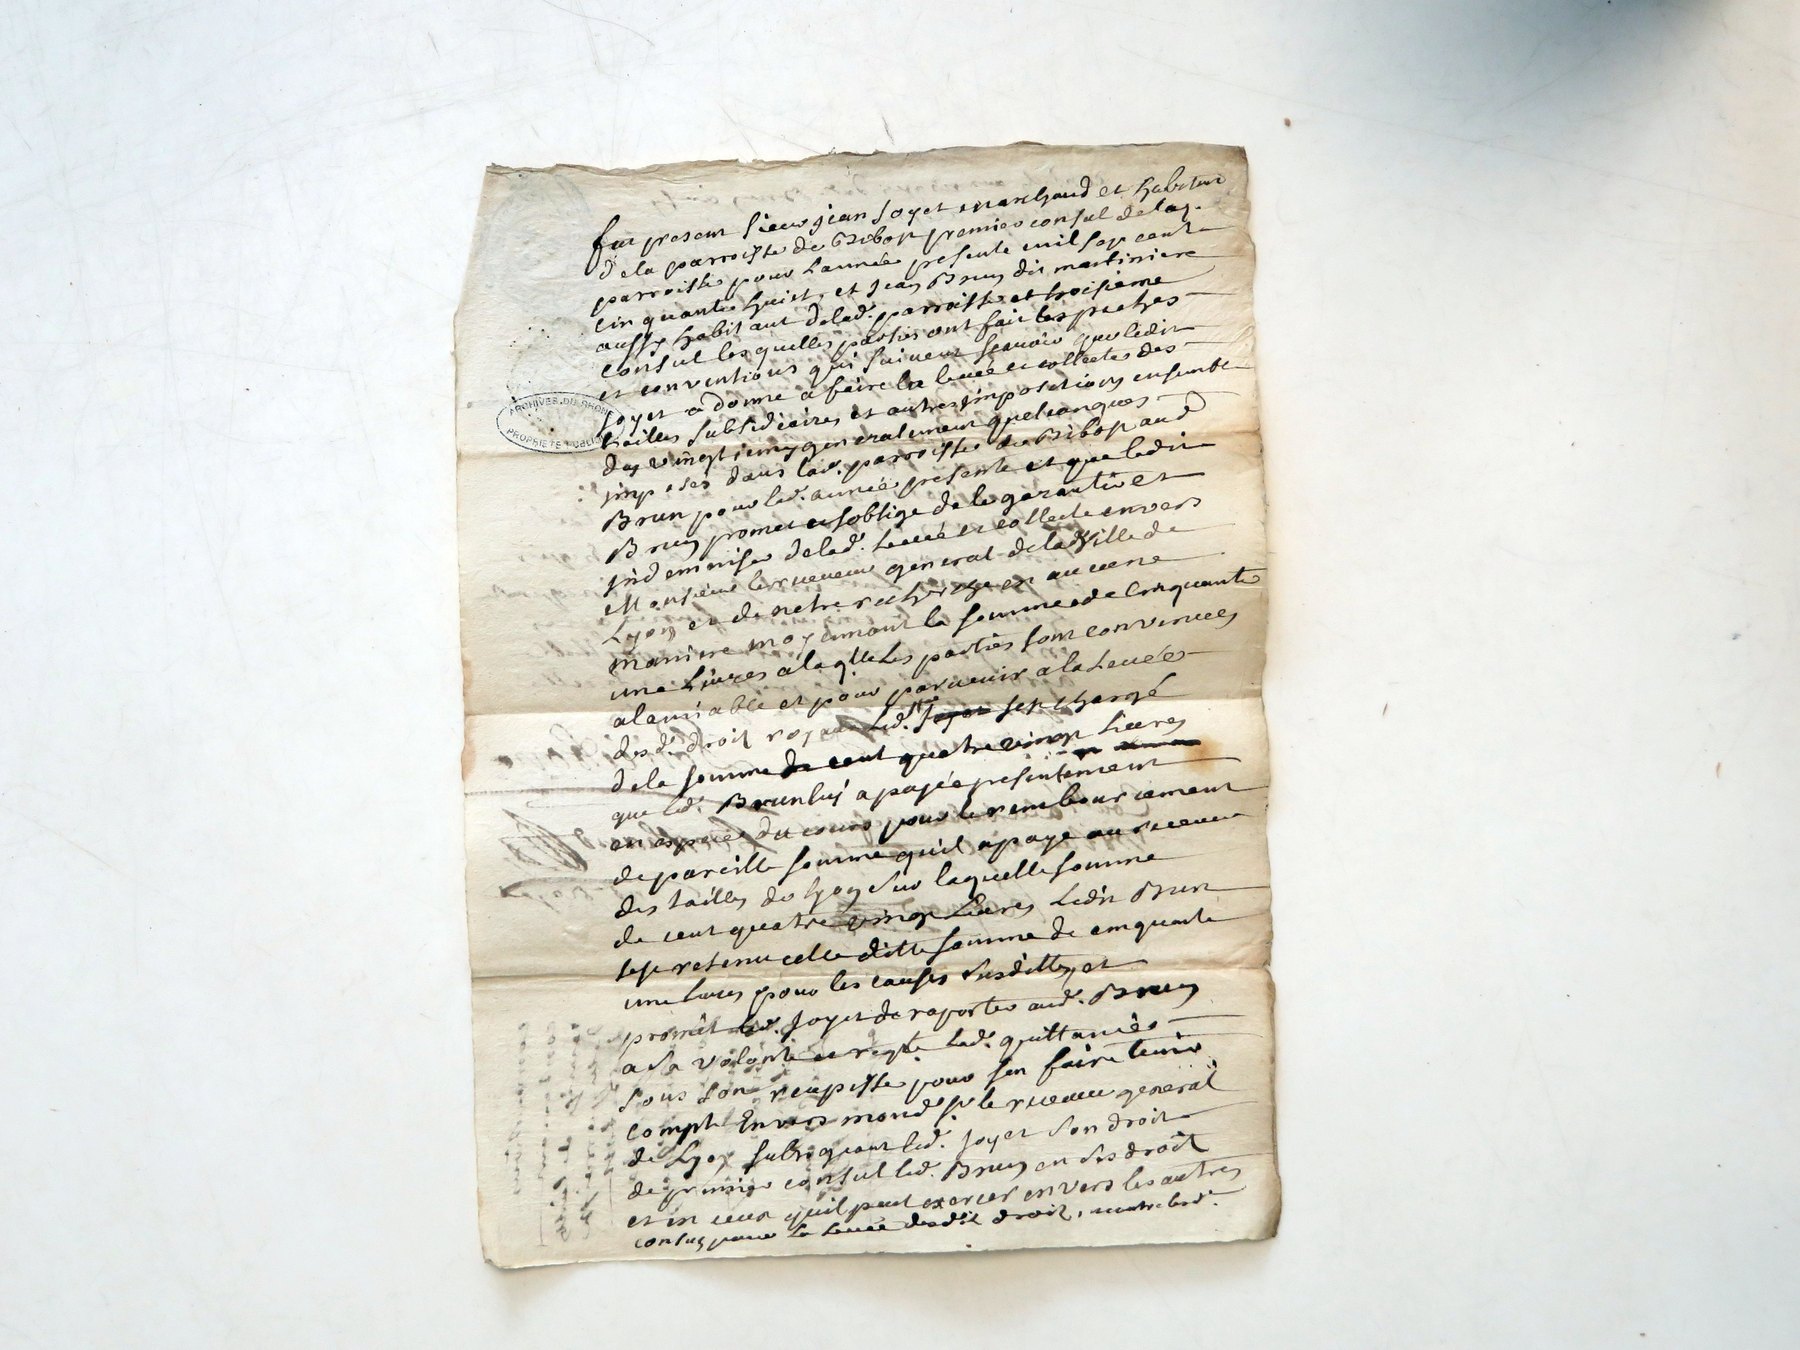 fut present sieur jean joyet marchand et habitant
de la parroisse de Bibost premier consul de lad.
parroisse pour lannée presente mil sept cent
cinquante huict, et jean Brun dit martiniere
aussy habitant delad. parroisse et troisieme
consul lesquelles parties ont fait les pactes
et conventions qui suivent scavoir que ledit
joyet a donné a faire la levée et collecte des
tailles subsidiaires et autres impositions ensemble
des vingtiemes generalement quelconques
imposés dans lad. parroisse de Bibost aud
Brun pour lad. année presente et que ledit
Brun promet et soblige de le garantir et
indemniser delad. levée et collecte envers
Monsieur le receveur general de la Ville de
Lyon et de nestre recherché en aucune
maniere moyennant la somme de cinquante
une Livres a laqlle les parties sont convenues
alamiable et pour parvenir a la Levée
desd. droit led. sest chargé
de la somme de cent quatre vingt Livres
que led. Brun luy a payée presentement
en especes du cours pour le remboursement
de pareille somme quil a payé au receveur
des tailles de lyon sur laquelle somme
de cent quatre vingt Livres Ledit Brun
sest retenu celle ditte somme de cinquante
une livres pour les causes susdittes et
promet led. joyet de raporter aud. Brun
a sa volonté et Lad. quittance
sous son recepissé pour sen faire tenir
compte Envers mond. sr. le receveur general
de Lyon subrogeant led. joyet son droit
de premier consul led. Brun en ses droit
et en ceux quil peut exercer envers les autres
consuls pour la Levée desdit droit,
ARCHIVES DU RHONE
PROPRIETE PUBLIQUE